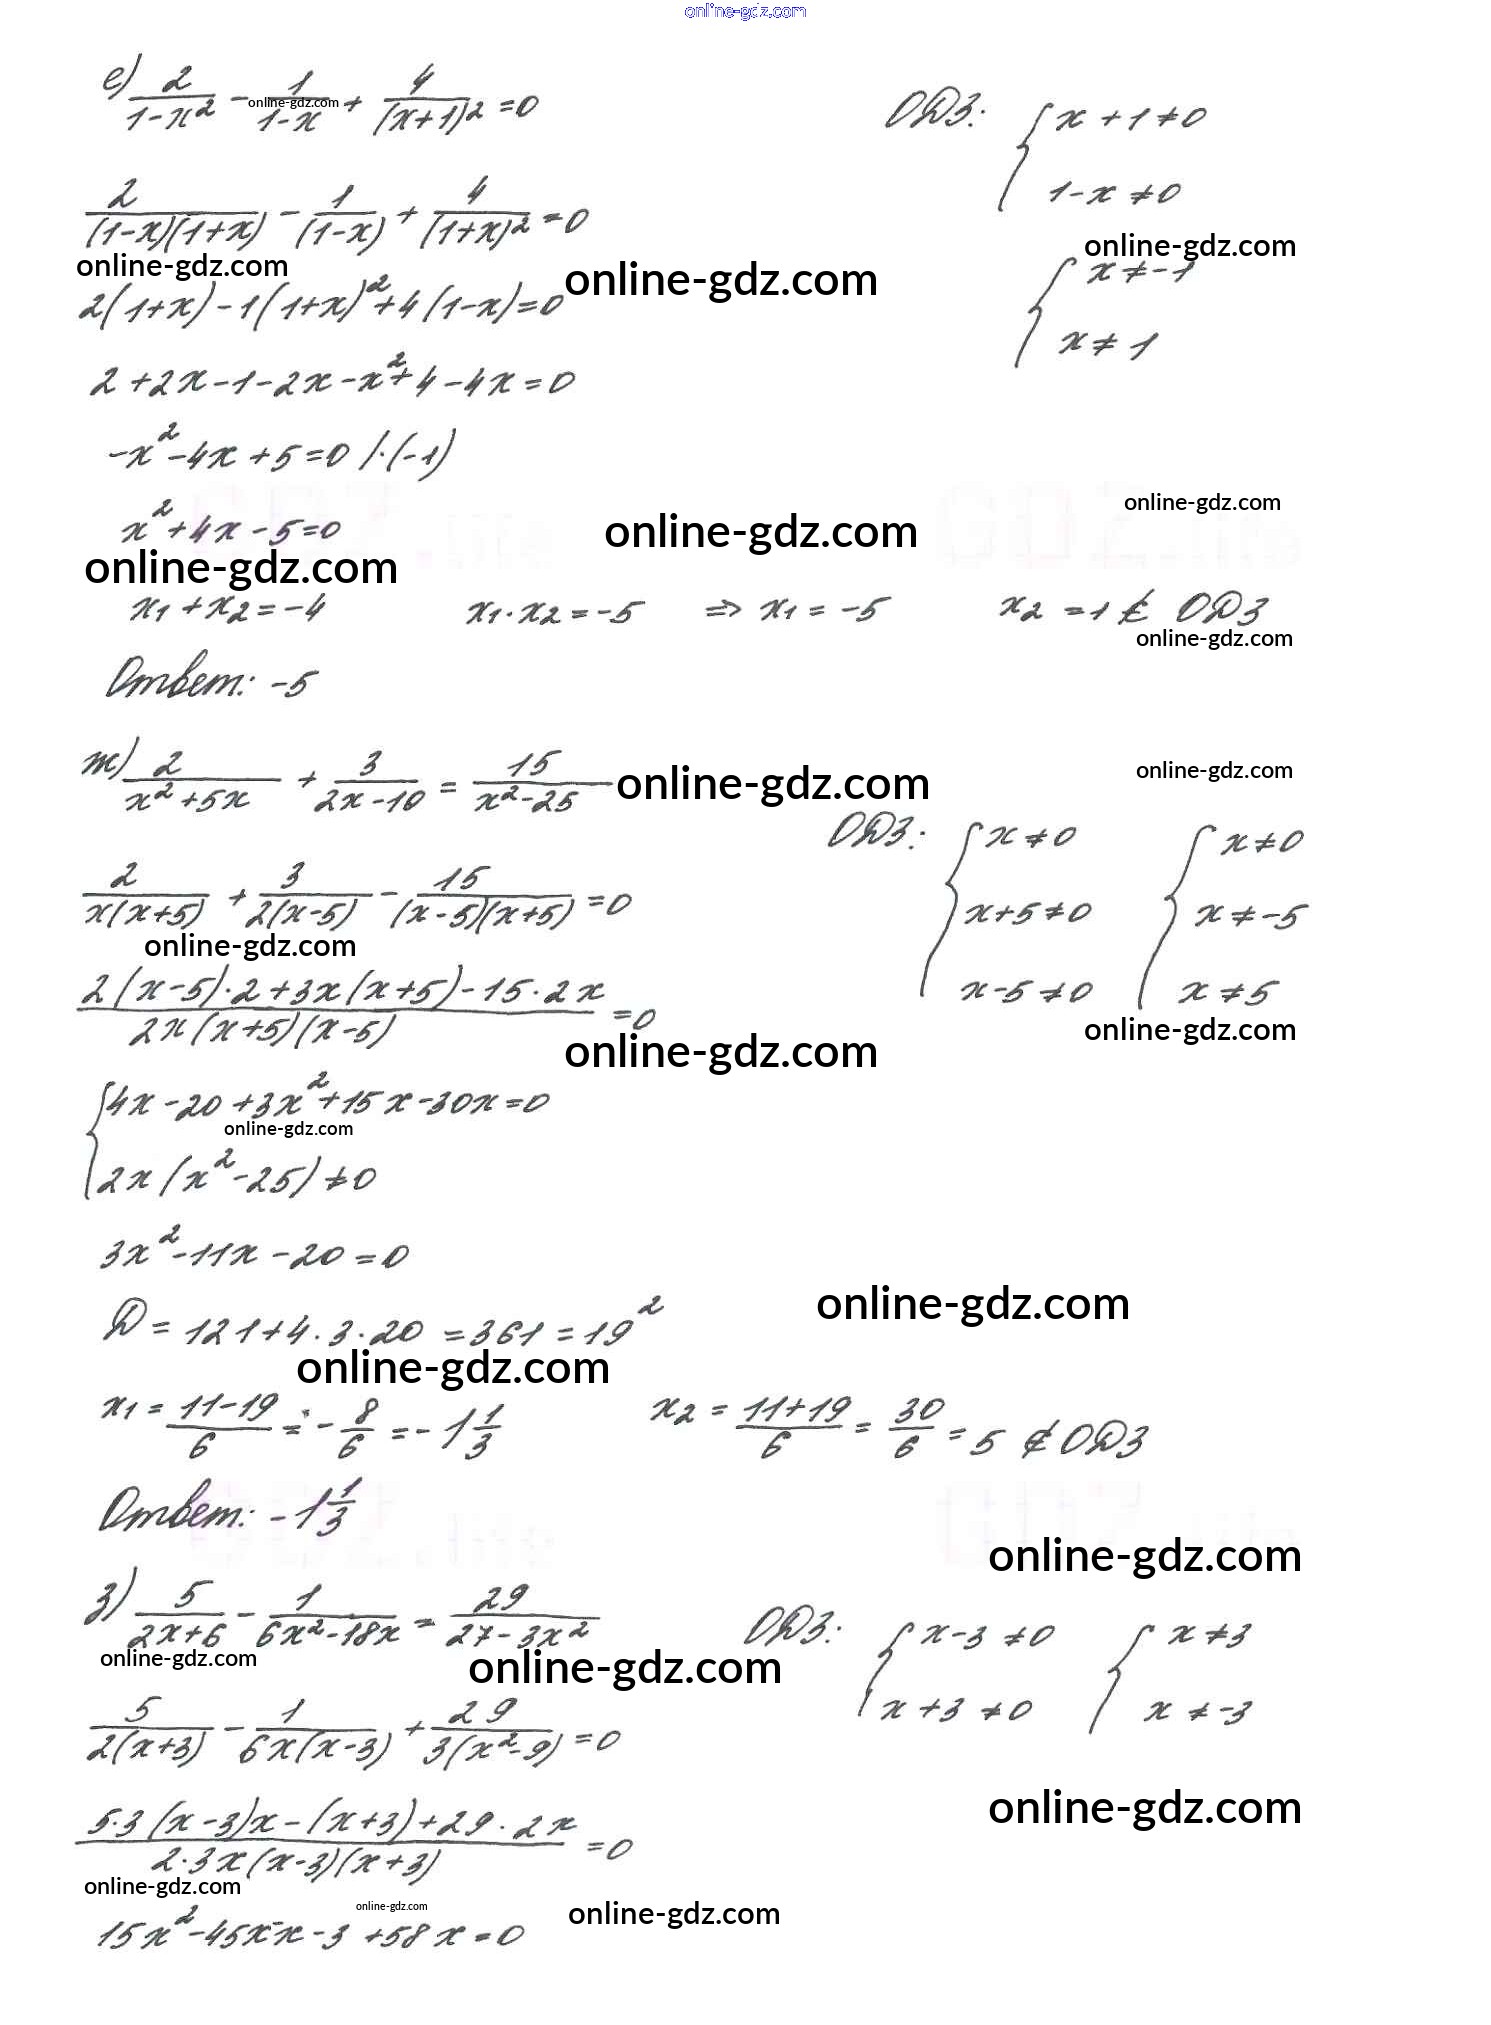 online-gdz.com
е) 2/(1-x²) - 1/(1-x) + 4/(x+1)² = 0
online-gdz.com
ОДЗ: { x + 1 ≠ 0
1-x ≠ 0
2/((1-x)(1+x)) - 1/(1-x) + 4/(1+x)² = 0
online-gdz.com
online-gdz.com
online-gdz.com
{ x ≠ -1
x ≠ 1
2(1+x) - 1(1+x)² + 4(1-x) = 0
2 + 2x - 1 - 2x - x² + 4 - 4x = 0
-x² - 4x + 5 = 0 /·(-1)
online-gdz.com
x² + 4x - 5 = 0
online-gdz.com
online-gdz.com
x₁ + x₂ = -4 x₁·x₂ = -5 ⇒ x₁ = -5 x₂ = 1 ∉ ОДЗ
online-gdz.com
Ответ: -5
ж) 2/(x²+5x) + 3/(2x-10) = 15/(x²-25)
online-gdz.com
online-gdz.com
ОДЗ: { x ≠ 0 { x ≠ 0
x+5 ≠ 0 x ≠ -5
x-5 ≠ 0 x ≠ 5
2/(x(x+5)) + 3/(2(x-5)) - 15/((x-5)(x+5)) = 0
online-gdz.com
(2(x-5)·2 + 3x(x+5) - 15·2x)/(2x(x+5)(x-5)) = 0
online-gdz.com
online-gdz.com
{ 4x - 20 + 3x² + 15x - 30x = 0
online-gdz.com
2x(x²-25) ≠ 0
3x² - 11x - 20 = 0
online-gdz.com
D = 121 + 4·3·20 = 361 = 19²
online-gdz.com
x₁ = (11-19)/6 = - 8/6 = - 1 1/3 x₂ = (11+19)/6 = 30/6 = 5 ∉ ОДЗ
Ответ: - 1 1/3
online-gdz.com
з) 5/(2x+6) - 1/(6x²-18x) = 29/(27-3x²)
online-gdz.com
online-gdz.com
ОДЗ: { x-3 ≠ 0 { x ≠ 3
x+3 ≠ 0 x ≠ -3
5/(2(x+3)) - 1/(6x(x-3)) + 29/(3(x²-9)) = 0
online-gdz.com
(5·3(x-3)x - (x+3) + 29·2x)/(2·3x(x-3)(x+3)) = 0
online-gdz.com
online-gdz.com
online-gdz.com
15x² - 45x - x - 3 + 58x = 0